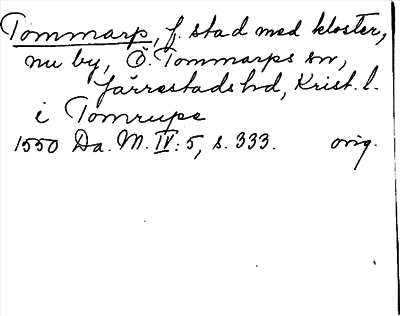 Tommarp, f. stad med kloster,
nu by, Ö. Tommarps sn,
Järrestads hd, Krist. l.
i Tomrupe
1550 Da. M. IV: 5, s. 333. orig.